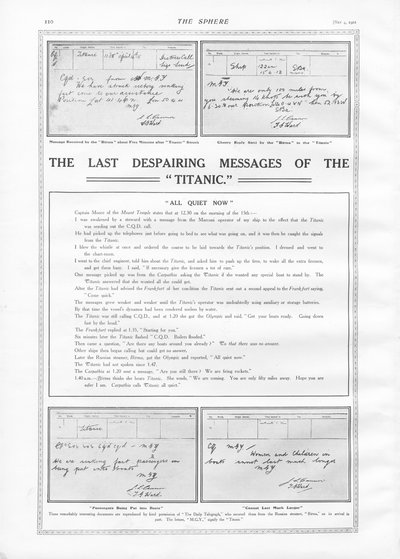 110
THE SPHERE
[MAY 4, 1912
Titanic
Cqd - sos from MGY
We have struck iceberg sinking
fast come to our assistance
Position Lat 41.46 N. Lon 50.14 W
MGY
Message Received by the "Birma" about Five Minutes after "Titanic" Struck
MGY
We are only 100 miles from
you steaming 14 knots be with you by
6.30
SBA
Cheery Reply Sent by the "Birma" to the "Titanic"
THE LAST DESPAIRING MESSAGES OF THE
"TITANIC."
"ALL QUIET NOW"
Captain Moore of the Mount Temple states that at 12.30 on the morning of the 15th:—
I was awakened by a steward with a message from the Marconi operator of my ship to the effect that the Titanic
was sending out the C.Q.D. call.
He had picked up the telephones just before going to bed to see what was going on, and it was then he caught the signals
from the Titanic.
I blew the whistle at once and ordered the course to be laid towards the Titanic's position. I dressed and went to
the chart-room.
I went to the chief engineer, told him about the Titanic, and asked him to push up the fires, to wake all the extra firemen,
and get them busy. I said, "If necessary give the firemen a tot of rum."
One message picked up was from the Carpathia asking the Titanic if she wanted any special boat to stand by. The
Titanic answered that she wanted all she could get.
After the Titanic had advised the Frankfurt of her condition the Titanic sent out a second appeal to the Frankfurt saying,
"Come quick."
The messages grew weaker and weaker until the Titanic's operator was undoubtedly using auxiliary or storage batteries.
By that time the vessel's dynamos had been rendered useless by water.
The Titanic was still calling C.Q.D., and at 1.20 she got the Olympic and said, "Get your boats ready. Going down
fast by the head."
The Frankfurt replied at 1.35, "Starting for you."
Six minutes later the Titanic flashed "C.Q.D. Boilers flooded."
Then came a question, "Are there any boats around you already?" To that there was no answer.
Other ships then began calling but could get no answer.
Later the Russian steamer, Birma, got the Olympic and reported, "All quiet now."
The Titanic had not spoken since 1.47.
The Carpathia at 1.20 sent a message, "Are you still there? We are firing rockets."
1.40 a.m.—Birma thinks she hears Titanic. She sends, "We are coming. You are only fifty miles away. Hope you are
safer I am. Carpathia calls Titanic all quiet."
Titanic
sos sos cqd cqd - MGY
We are sinking fast passengers are
being put into boats
MGY
"Passengers Being Put into Boats"
Cq MGY
Women and children in
boats cannot last much longer
MGY
"Cannot Last Much Longer"
These remarkably interesting documents are reproduced by kind permission of "The Daily Telegraph," who secured them from the Russian steamer, "Birma," on its arrival in
port. The letters, "M.G.Y.," signify the "Titanic"